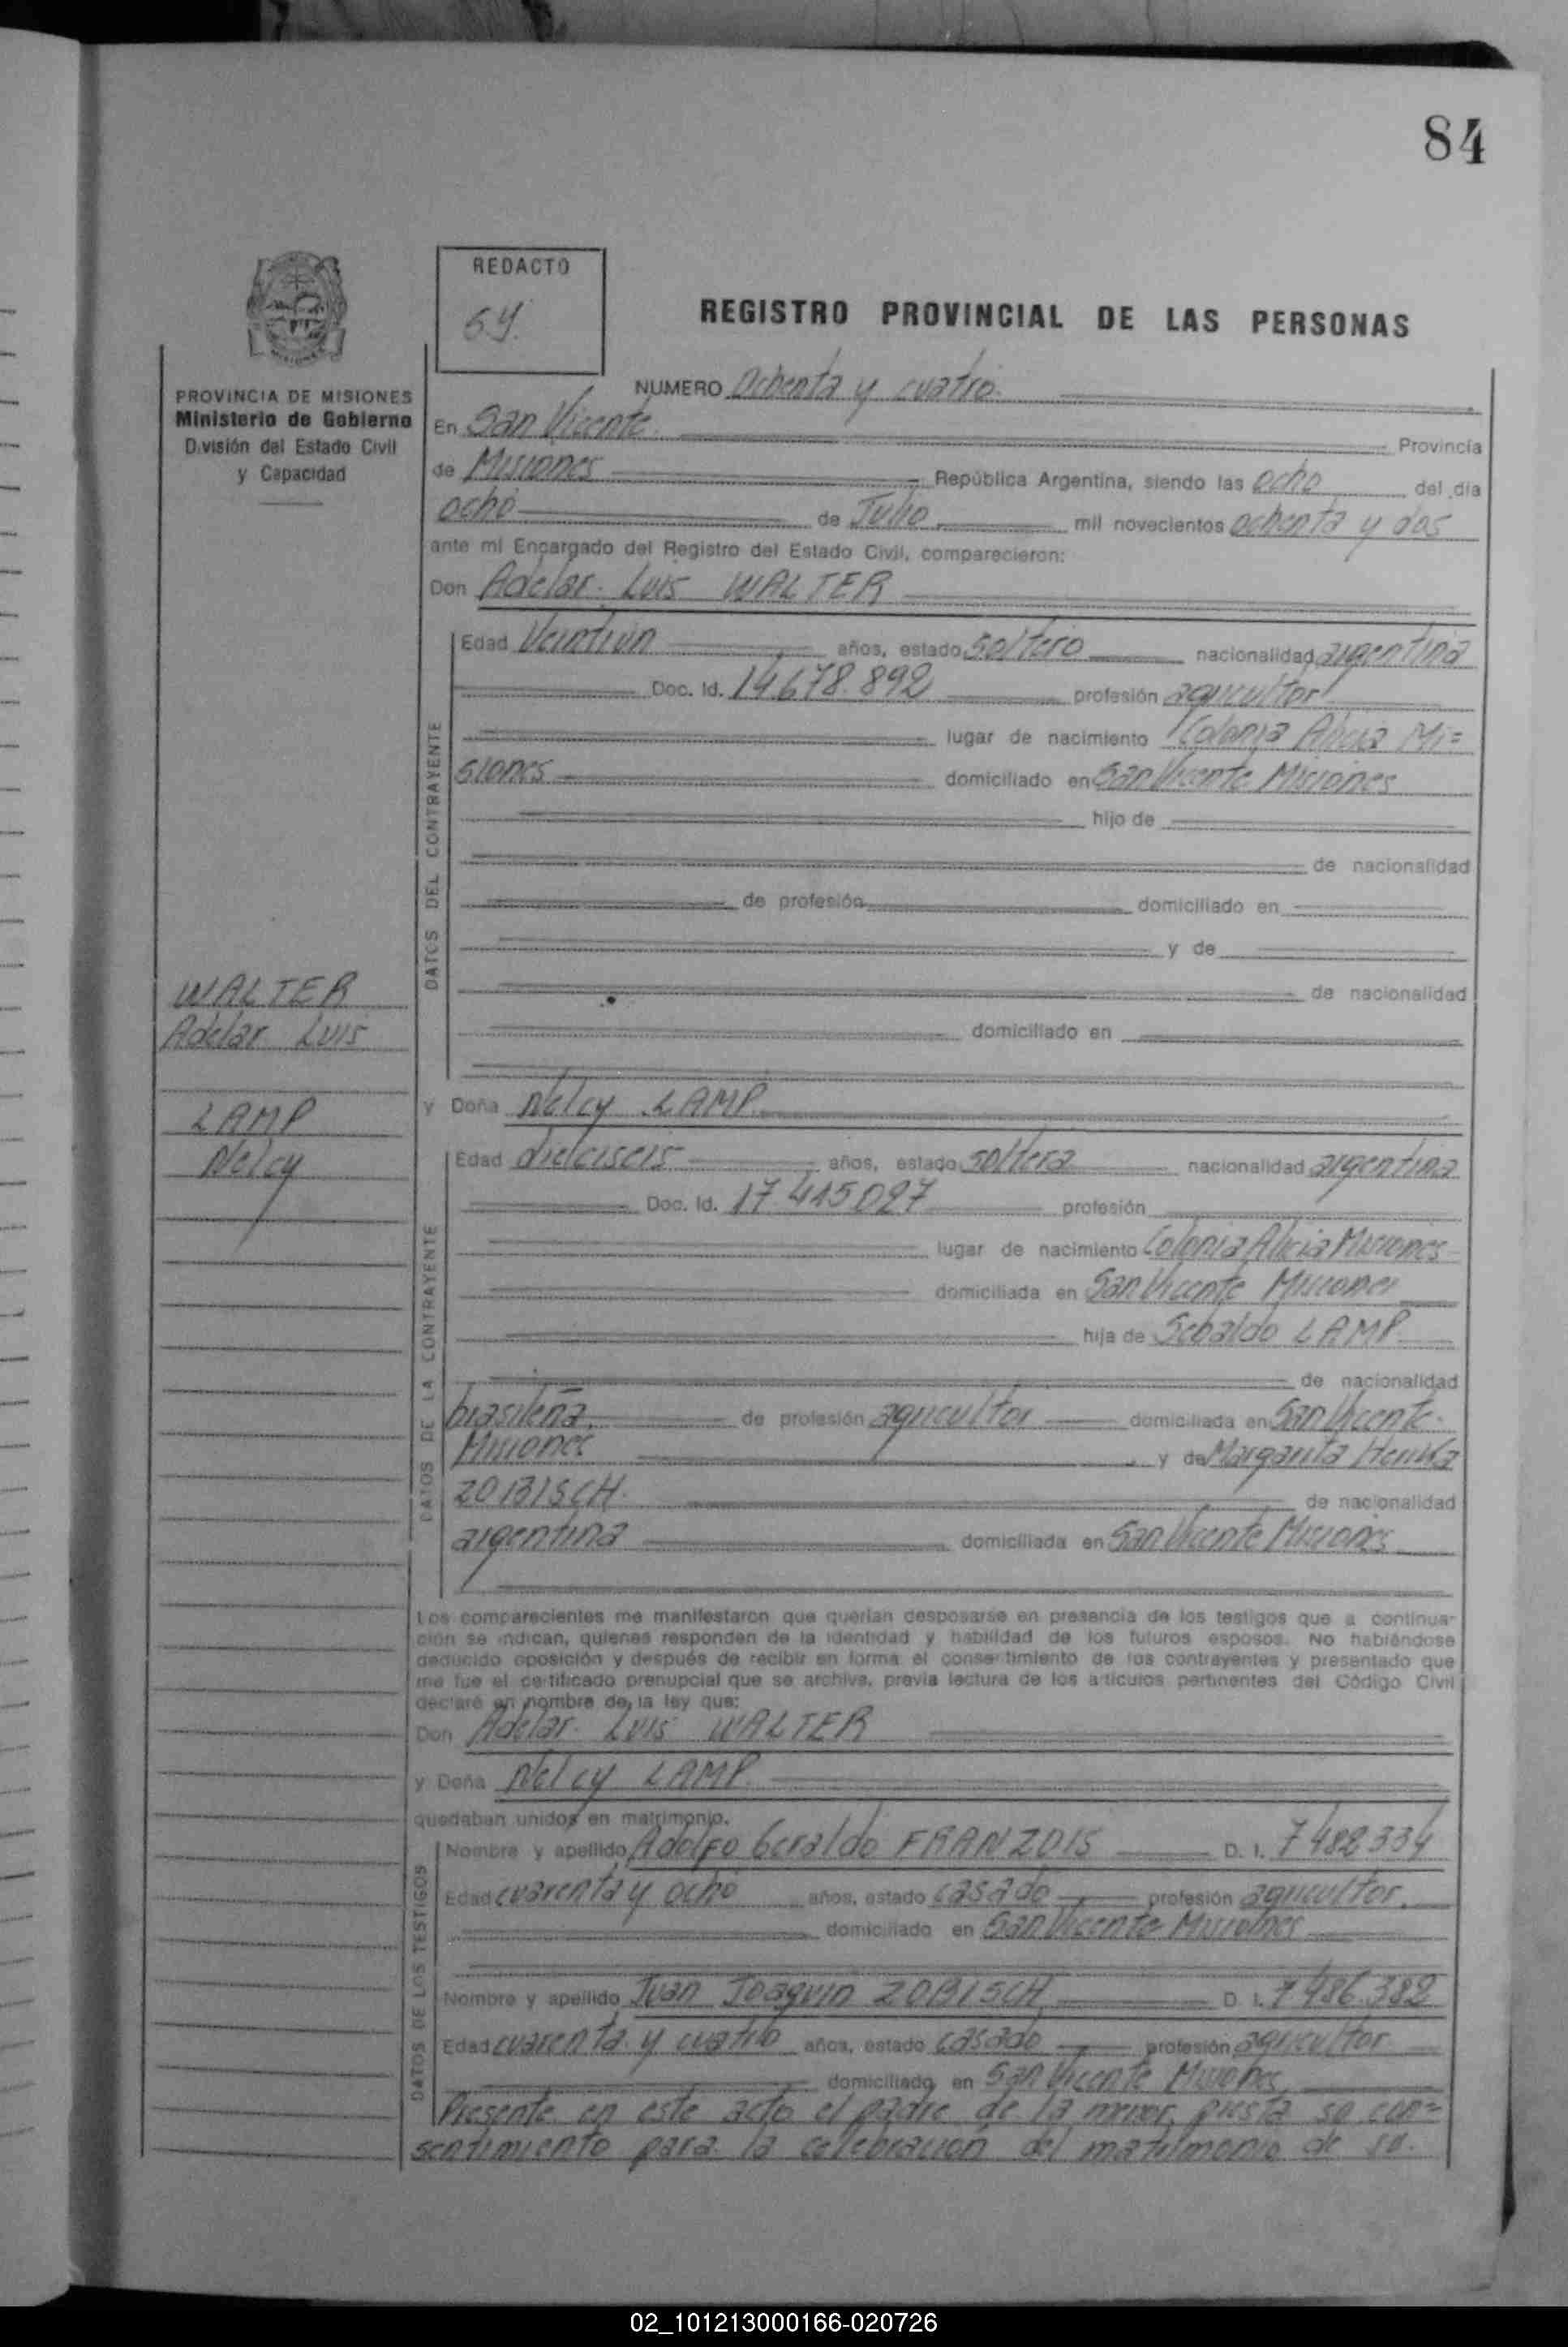 84
REDACTO
REGISTRO PROVINCIAL DE LAS PERSONAS
PROVINCIA DE MISIONES
Ministerio de Gobierno
División del Estado Civil
y Capacidad
NUMERO Ochenta y cuatro.
En San Vicente. Provincia
de Misiones República Argentina, siendo las ocho del día
ocho de Julio mil novecientos ochenta y dos
ante mí Encargado del Registro del Estado Civil, comparecieron:
Don Adelar Luis WALTER
DATOS DEL CONTRAYENTE
Edad Veintiun años, estado soltero nacionalidad argentina
Doc. Id. 14.678.892 profesión agricultor
lugar de nacimiento Colonia Alicia Mi=
siones domiciliado en San Vicente Misiones
hijo de
de nacionalidad
de profesión domiciliado en
y de
de nacionalidad
domiciliado en
WALTER
Adelar Luis
LAMP
Nelcy
y Doña Nelcy LAMP
DATOS DE LA CONTRAYENTE
Edad dieciseis años, estado soltera nacionalidad argentina
Doc. Id. 17.415027 profesión
lugar de nacimiento Colonia Alicia Misiones
domiciliada en San Vicente Misiones
hija de Sebaldo LAMP
de nacionalidad
brasileña de profesión agricultor domiciliada en San Vicente
Misiones y de Margarita
ZOBISCH de nacionalidad
argentina domiciliada en San Vicente Misiones
Los comparecientes me manifestaron que querían desposarse en presencia de los testigos que a continua-
ción se indican, quienes responden de la identidad y habilidad de los futuros esposos. No habiéndose
deducido oposición y después de recibir en forma el consentimiento de los contrayentes y presentado que
me fue el certificado prenupcial que se archiva, previa lectura de los artículos pertinentes del Código Civil
declaré en nombre de la ley que:
Don Adelar Luis WALTER
y Doña Nelcy LAMP
quedaban unidos en matrimonio.
DATOS DE LOS TESTIGOS
Nombre y apellido Adolfo Geraldo FRANZOIS D. I. 7482334
Edad cuarenta y ocho años, estado casado profesión agricultor.
domiciliado en San Vicente Misiones
Nombre y apellido Juan Joaquin ZOBISCH D. I. 7486.382
Edad cuarenta y cuatro años, estado casado profesión agricultor
domiciliado en San Vicente Misiones
Presente en este acto el padre de la menor, presta su con=
sentimiento para la celebracion del matrimonio de su
02_101213000166-020726